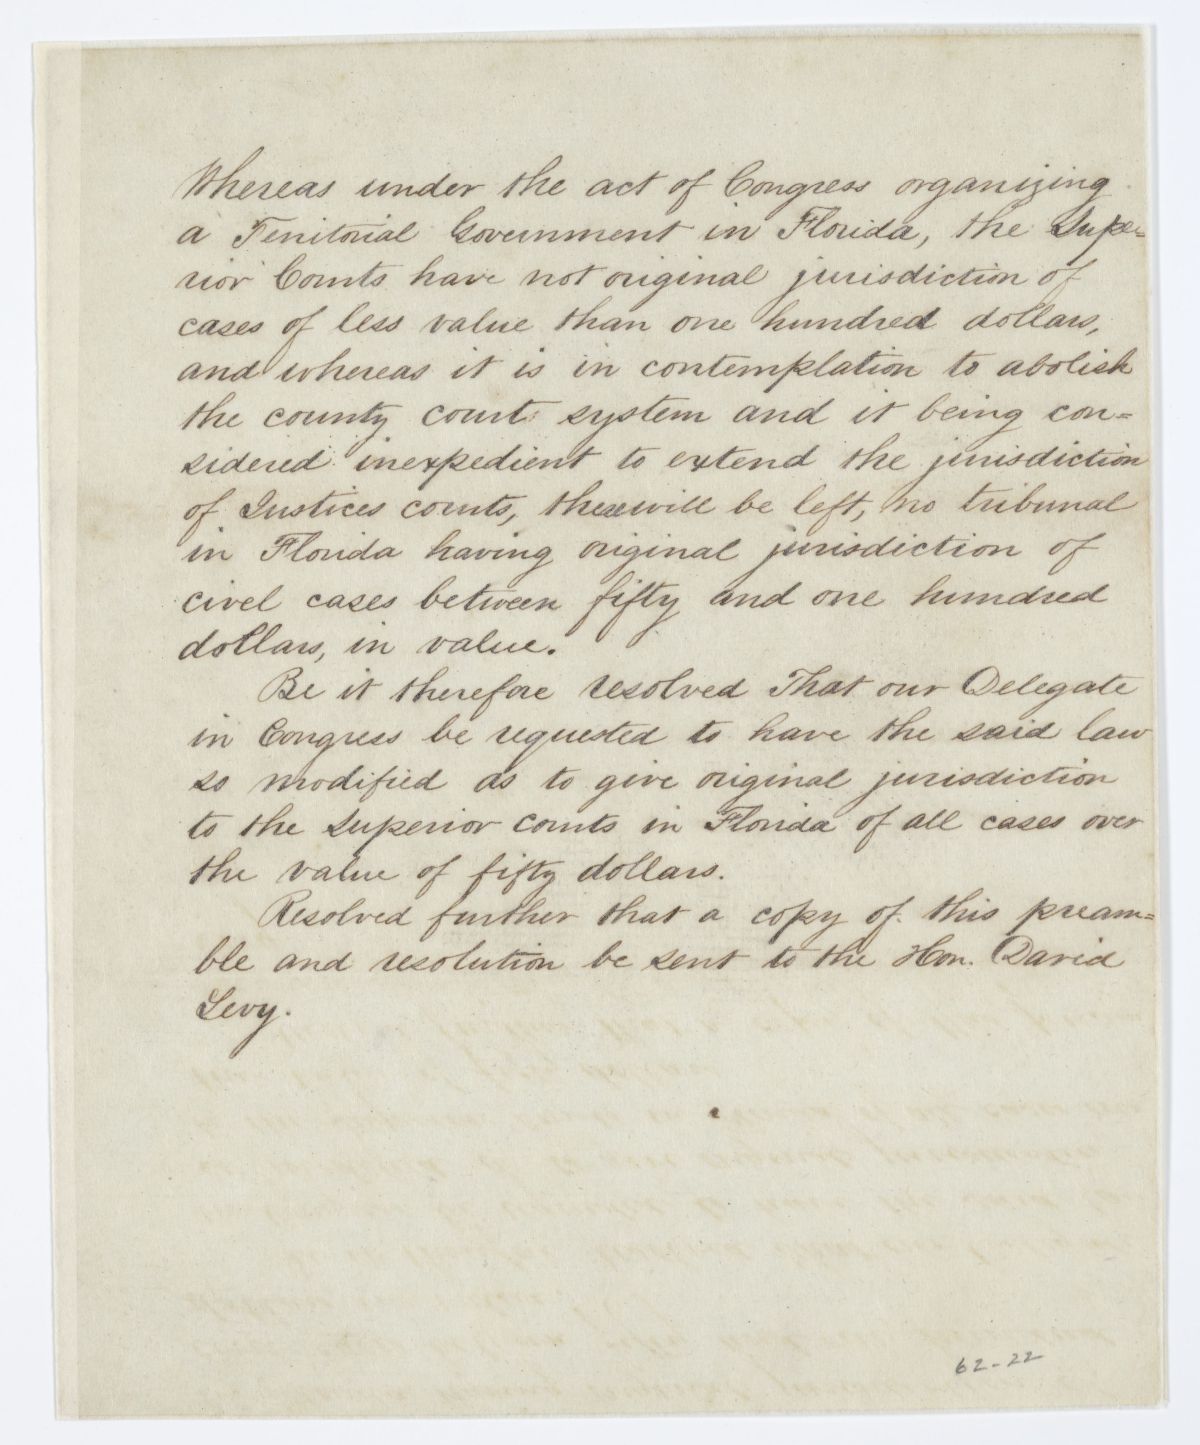 Whereas under the act of Congress organizing
a Territorial Government in Florida, the Supe-
rior Courts have not original jurisdiction of
cases of less value than one hundred dollars,
and whereas it is in contemplation to abolish
the county court system and it being con=
sidered inexpedient to extend the jurisdiction
of Justices courts, there will be left, no tribunal
in Florida having original jurisdiction of
civel cases between fifty and one hundred
dollars, in value.
Be it therefore resolved That our Delegate
in Congress be requested to have the said law
so modified as to give original jurisdiction
to the Superior courts in Florida of all cases over
the value of fifty dollars.
Resolved further that a copy of this pream=
ble and resolution be sent to the Hon. David
Levy.
62-22